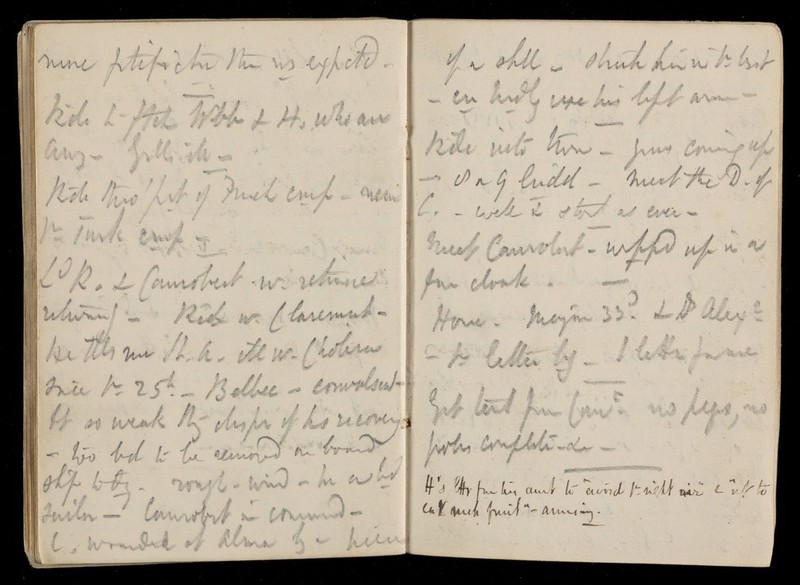 more satisfactory than was expected -
Ride to
& H. who are
away -
Ride thro' part of French camp - near
Turk camp -
Ld R. & Canrobert w. retinue
returning - Ride w. Claremont -
he tells me St. A. ill w. Cholera
since 25th. - Belbec - convalescent
but so weak they despair of his recovery
- too bad to be removed on board
ship to day - rough - wind - he a bad
sailor - Canrobert in command -
C. wounded at Alma by a piece
of a shell - struck him in breast
- can hardly use his left arm -
Ride into town - guns coming up
- meet the D. of
C. - as ever -
Meet Canrobert - wrapped up in a
fur cloak. -
Home. Major 33d. & Dr Alexr
- letter by - 1 letter from me
Get tent from no pegs, no
poles complete -
H's from his aunt to "avoid night air" & "not to
eat much fruit" - amusing.